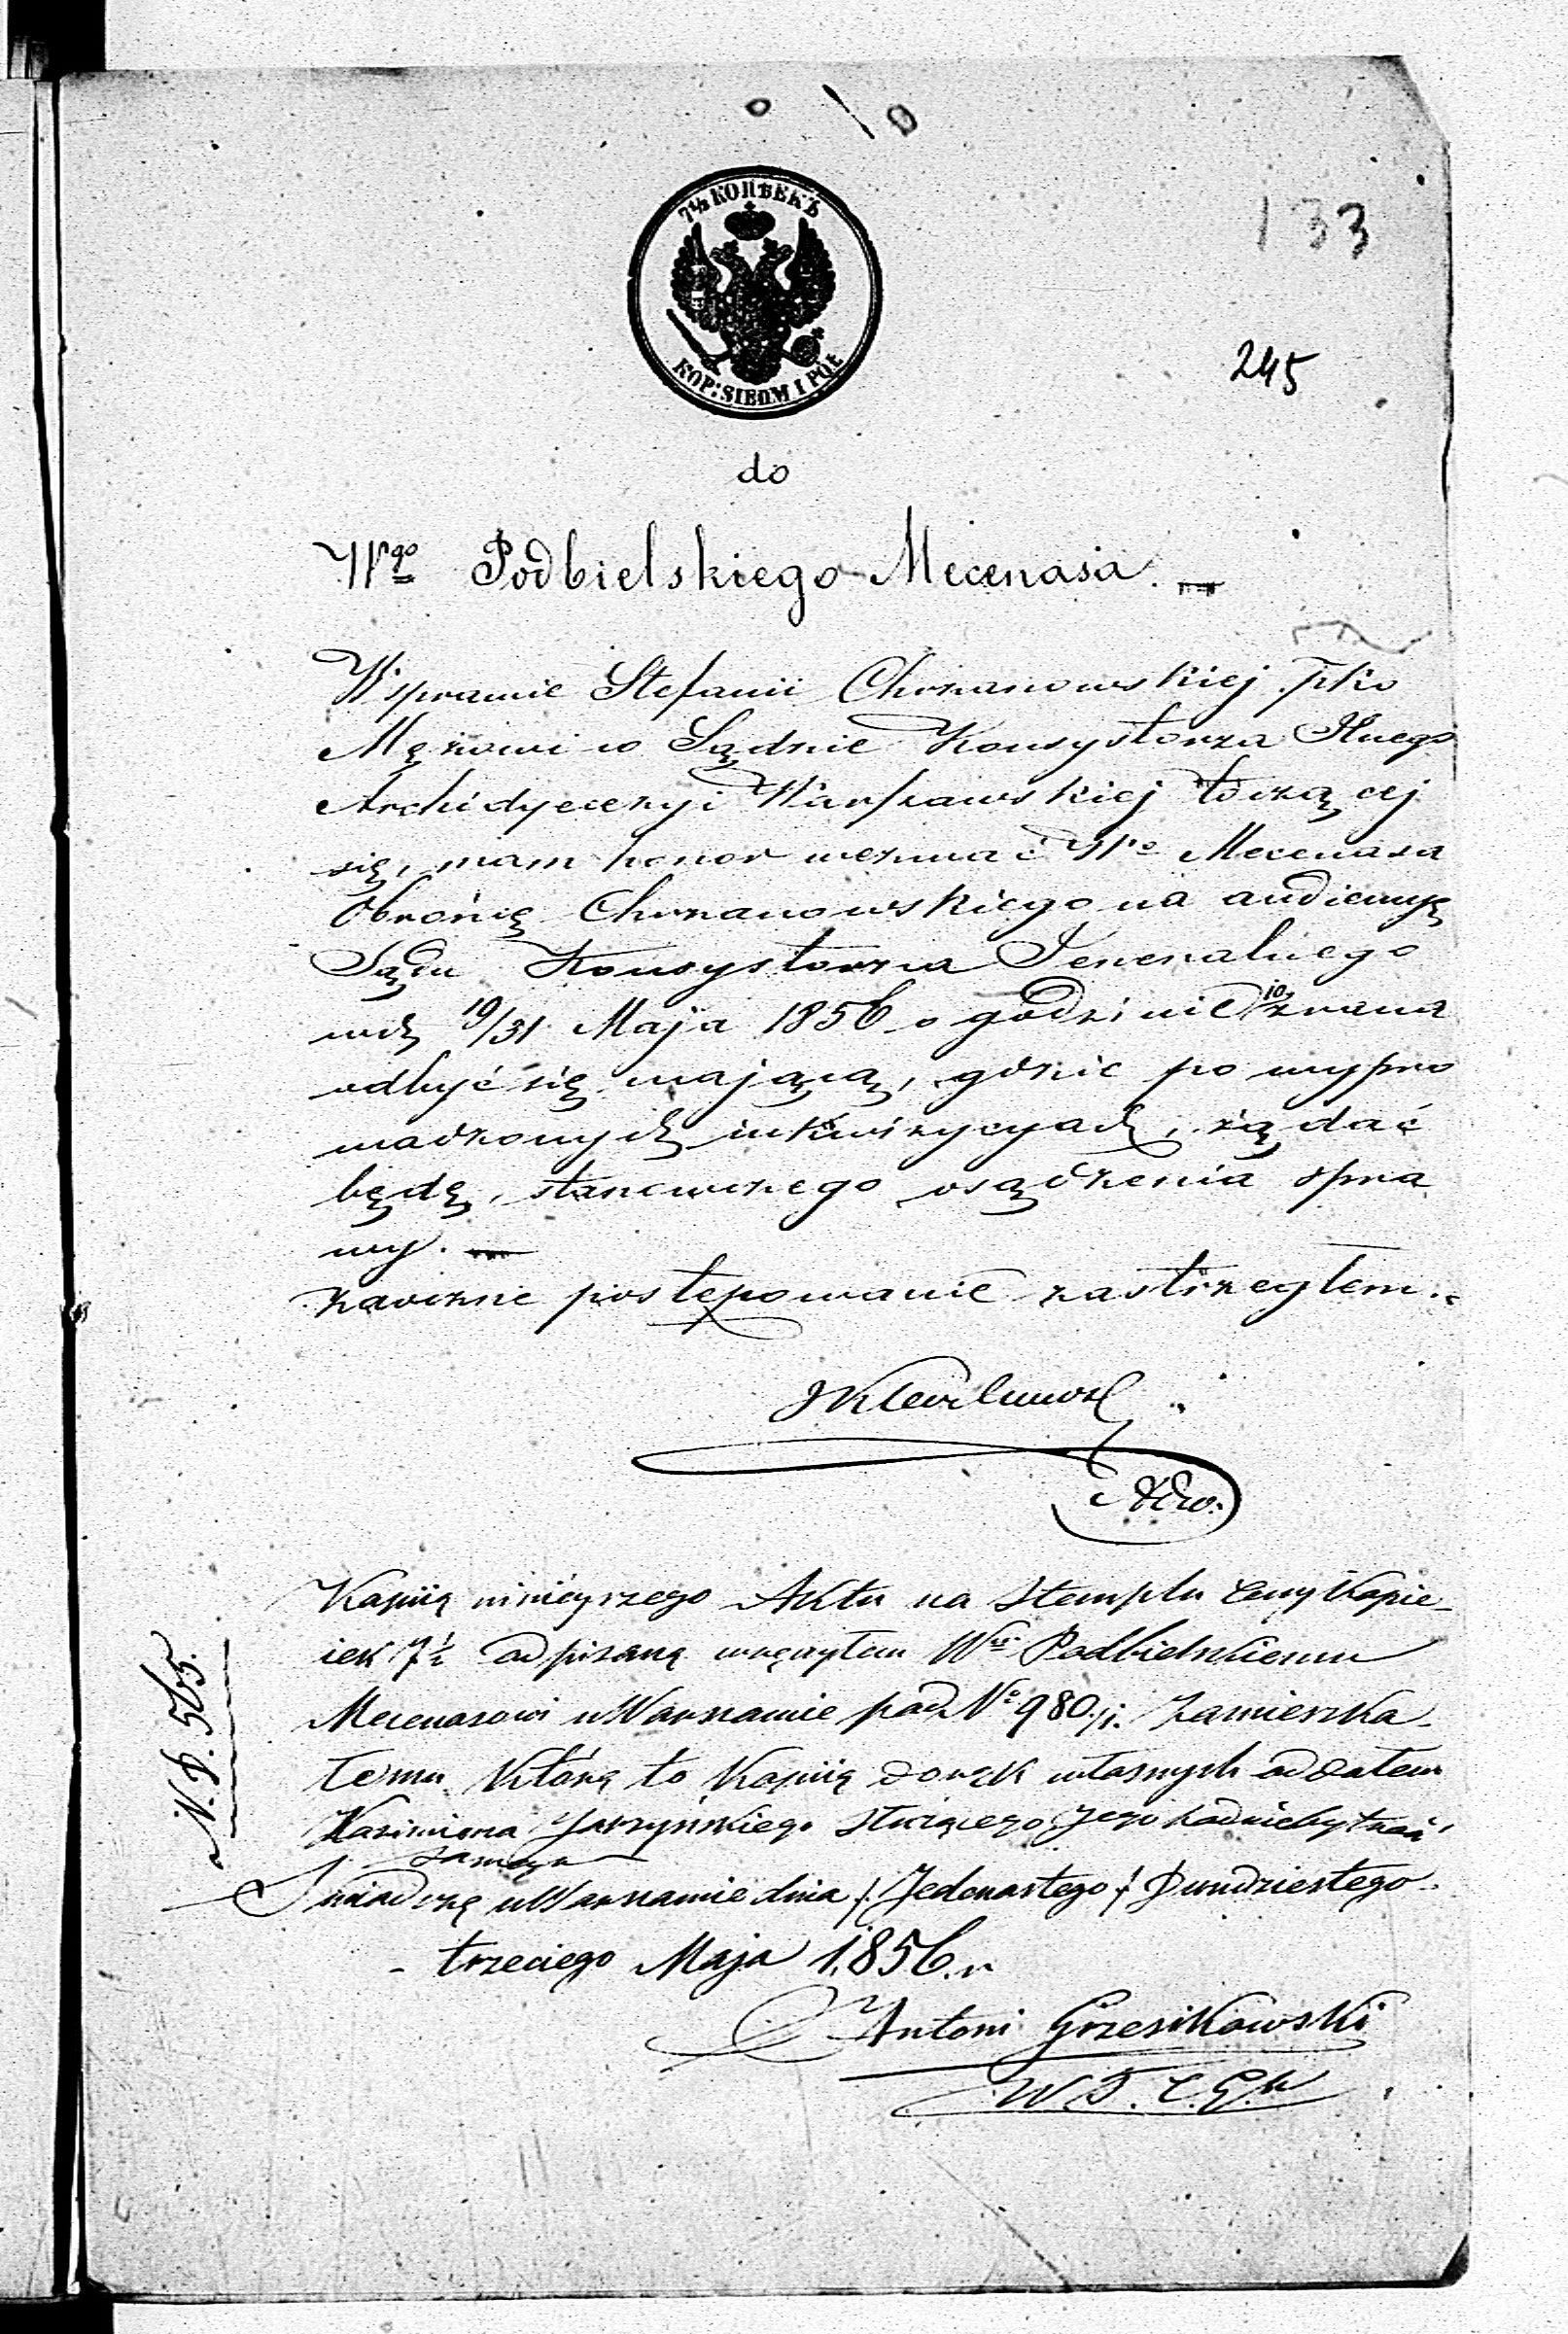 133
7½ КОПѢЕКЪ
KOP: SIEDM I PÓŁ
245
do
Wgo Podbielskiego Mecenasa.
W sprawie Stefanii Chrzanowskiej pko
Mężowi w Sądzie Konsystorza Jlnego
Archidyecezyi Warszawskiej toczącej
się, mam honor wezwać Wo Mecenasa
Obrońcę Chrzanowskiego na audiencyę
Sądu Konsystorza Jeneralnego
w dz 19/31 Maja 1856 o godzinie 10 z rana
odbyć się mającą, gdzie po wypro
wadzonych inkwizycyach, żądać
będę, stanowczego osądzenia spra
wy.
Zaoczne postępowanie zastrzegłem.
Adw.
Kopiią niniejszego Aktu na Stemplu Ceny Kopie-
iek 7½ odpisaną wręczyłem Wmu Podbielskiemu
Mecenasowi w Warszawie pod No 980. zamieszka-
łemu którą to kopiią do rąk własnych oddałem
Kazimierza Jarzyńskiego Służącego Jego pod niebytność
samego
Świadczę w Warszawie dnia /Jedenastego/ Dwudziestego-
- trzeciego Maja 1856. r
Antoni Grzesikowski
N. P. 565.